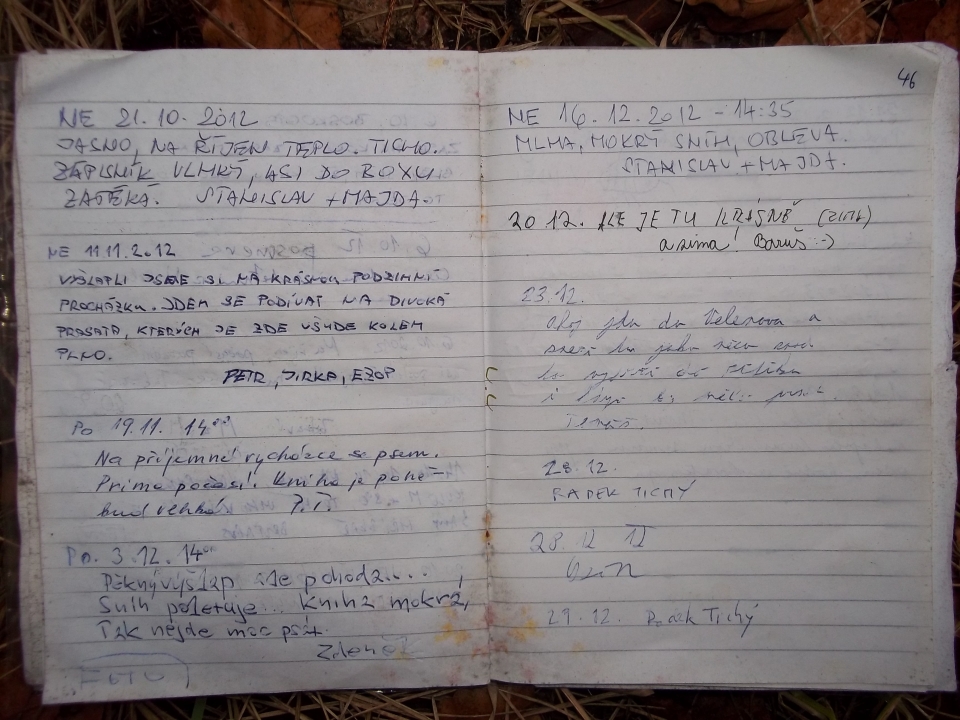 NE 21.10. 2012
JASNO, NA ŘÍJEN TEPLO. TICHO.
ZÁPISNÍK VLHKÝ, ASI DO BOXU
ZATÉKÁ. STANISLAV + MAJDA.
NE 11.11.2012
VYŠLAPLI JSME SI NA KRÁSNOU PODZIMNÍ
PROCHÁZKU. JDEM SE PODÍVAT NA DIVOKÁ
PRASATA, KTERÝCH JE ZDE VŠUDE KOLEM
PLNO.
PETR, JIRKA, EZOP
Po 19.11. 14⁰⁰
Na příjemné vycházce se psem.
Prima počasí! Kniha je poně-
kud vlhká
Po. 3.12. 14
Pěkný výšlap ale pohoda....
Sníh poletuje... Kniha mokrá,
Tak nejde moc psát.
Zdeněk
46
NE 16.12.2012 - 14:35
MLHA, MOKRÝ SNÍH, OBLEVA.
STANISLAV + MAJDA.
20 12. ALE JE TU KRÁSNĚ
a zima! Baruš :-)
23.12.
Ahoj jdu do a
to jako
i
Tomáš.
28.12.
RADEK TICHÝ
28. 12 12
29.12. Radek Tichý